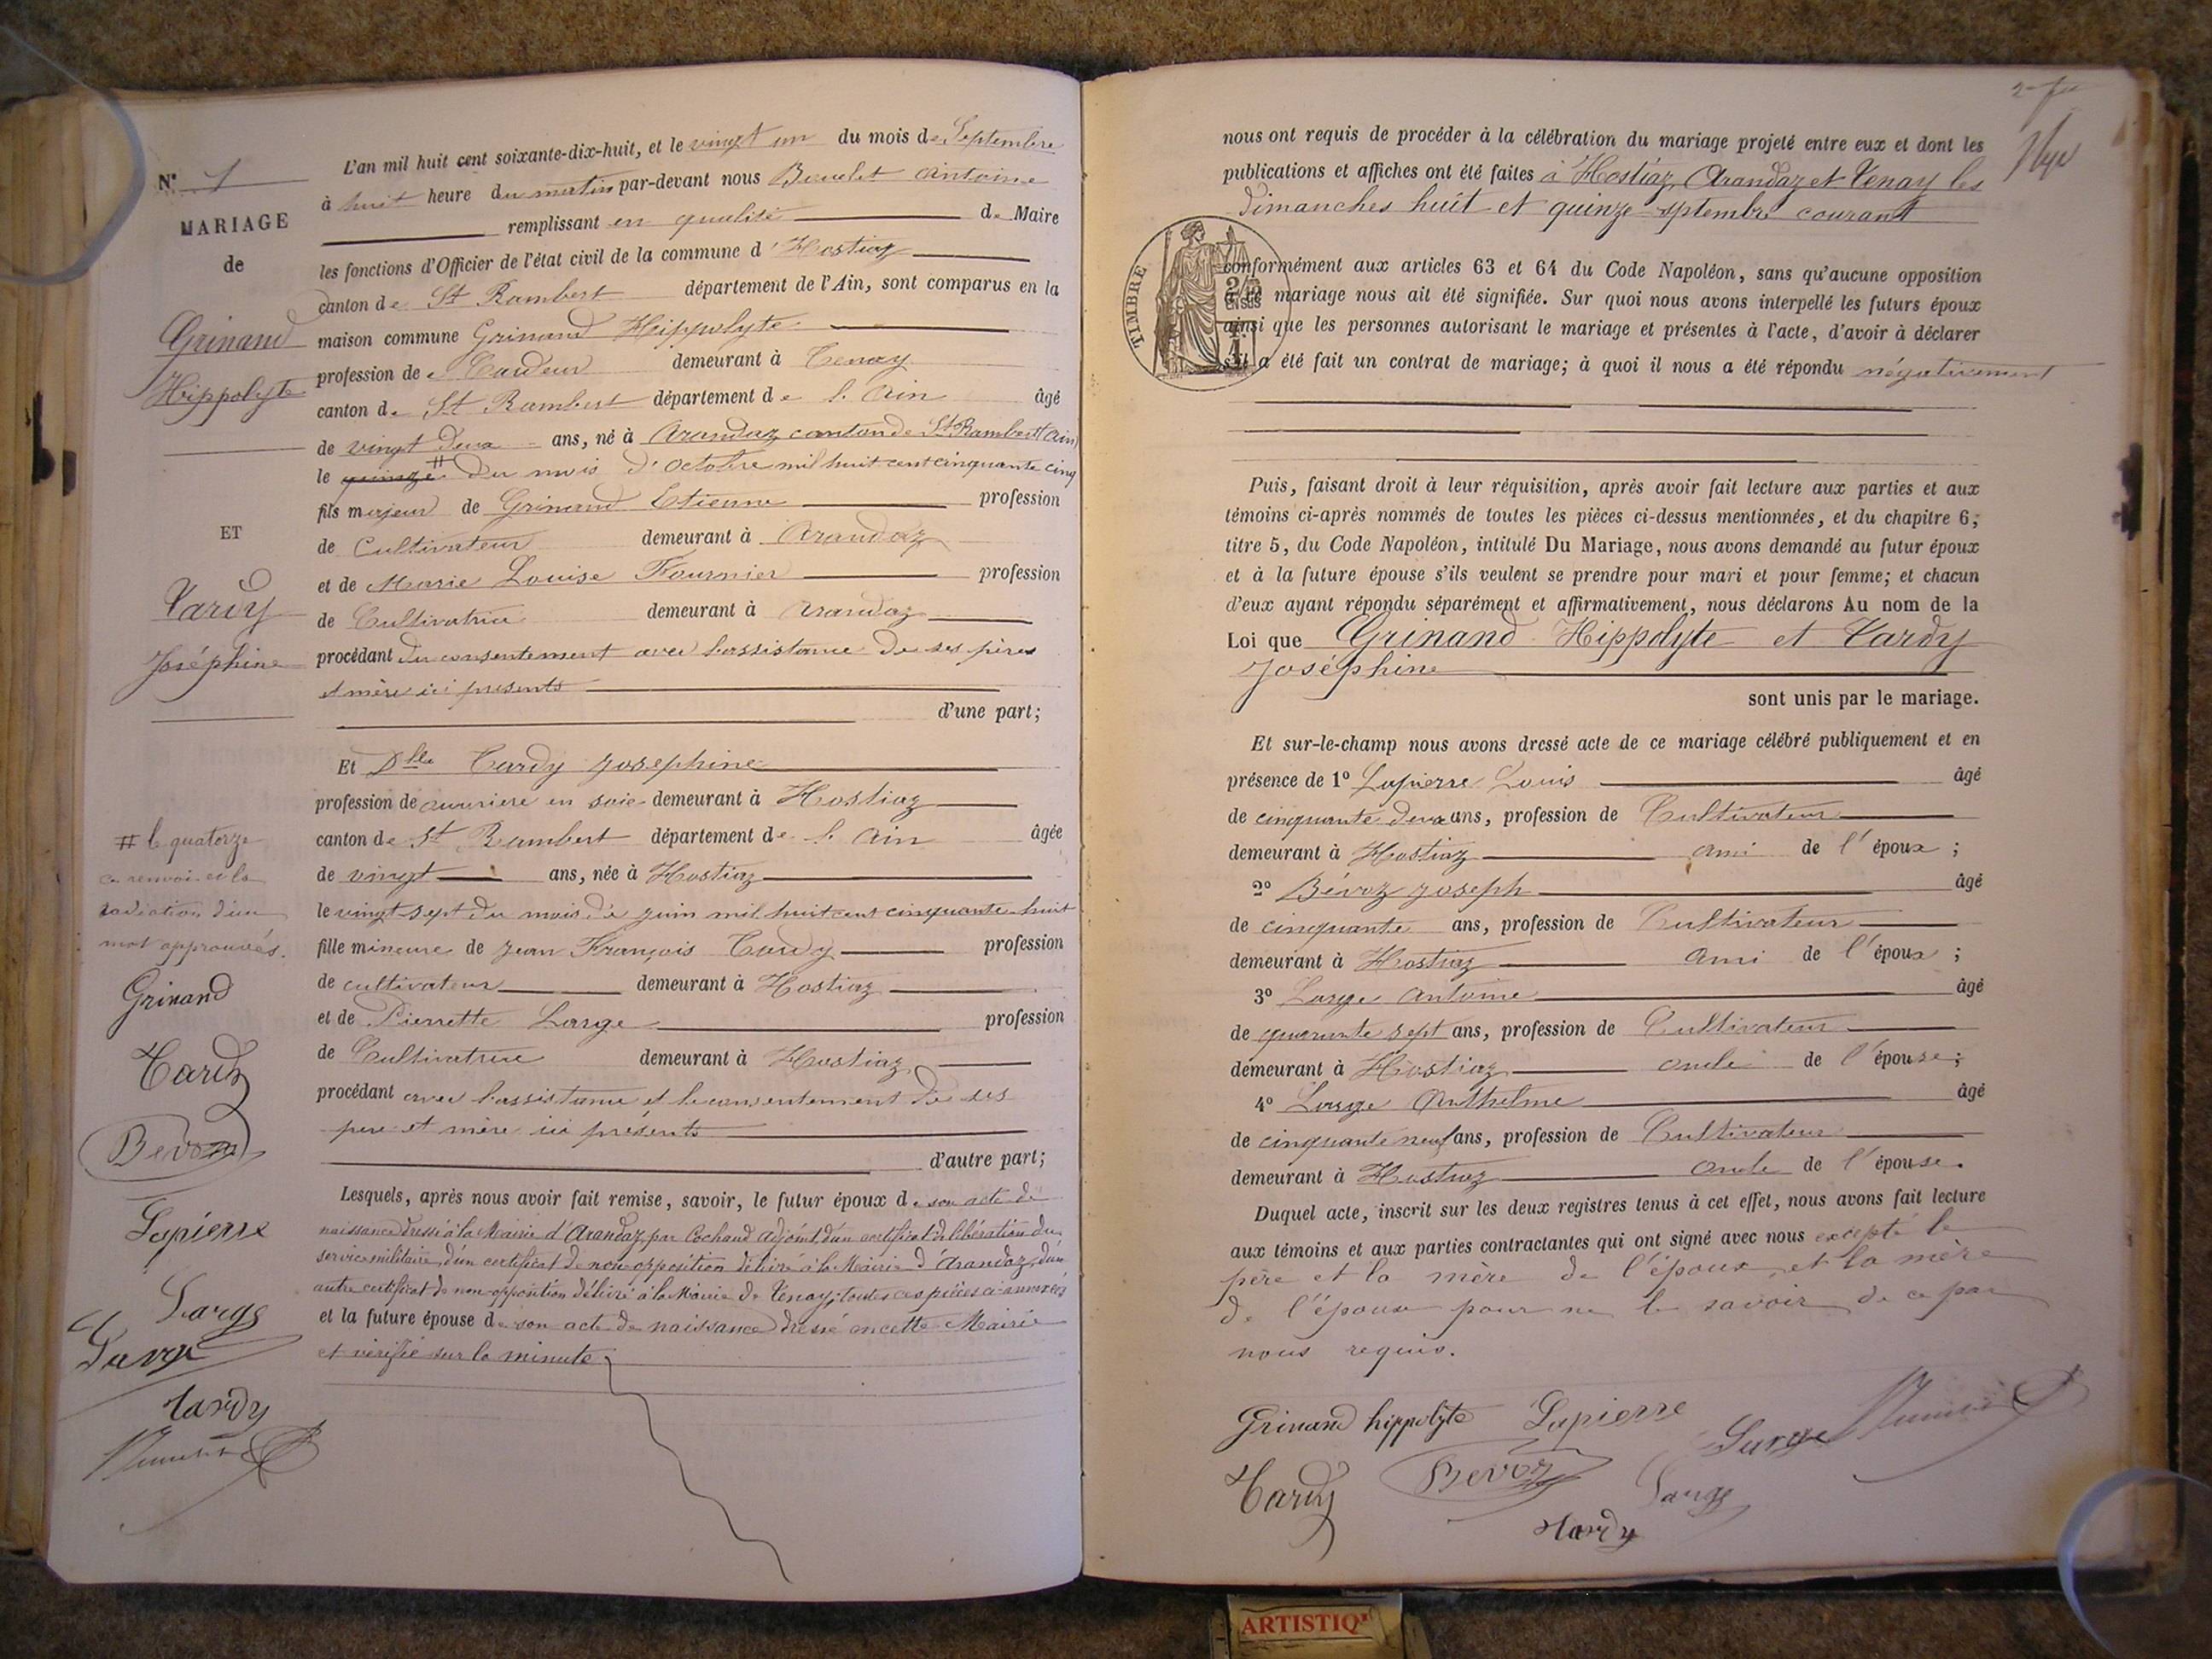 N° 1
MARIAGE
de
Grinand
Hippolyte
ET
Tardy
Joséphine
# le quatorze
ce renvoi et la
radiation d'un
mot approuvés.
Grinand
Tardy
Bevoz
Lapierre
Large
Large
Tardy
L'an mil huit cent soixante-dix-huit, et le vingt un du mois de Septembre
à huit heure du matin par-devant nous Antoine
remplissant en qualité de Maire
les fonctions d'Officier de l'état civil de la commune d'Hostiaz
canton de St Rambert département de l'Ain, sont comparus en la
maison commune Grinand Hippolyte
profession de Cardeur demeurant à Tenay
canton de St Rambert département de l'Ain âgé
de vingt deux ans, né à Arandaz canton de St Rambert (Ain)
le quinze # du mois d'Octobre mil huit cent cinquante cinq
fils majeur de Grinand Etienne profession
de Cultivateur demeurant à Arandaz
et de Marie Louise Fournier profession
de Cultivatrice demeurant à Arandaz
procédant du consentement avec l'assistance de ses pères
et mère ici présents
d'une part;
Et Dlle Tardy Josephine
profession de ouvriere en soie demeurant à Hostiaz
canton de St Rambert département de l'Ain âgée
de vingt ans, née à Hostiaz
le vingt-sept du mois de juin mil huit cent cinquante huit
fille mineure de Jean François Tardy profession
de cultivateur demeurant à Hostiaz
et de Pierrette Large profession
de Cultivatrice demeurant à Hostiaz
procédant avec l'assistance et le consentement de ses
père et mère ici présents
d'autre part;
Lesquels, après nous avoir fait remise, savoir, le futur époux de son acte de
naissance dressé à la Mairie d'Arandaz par Cochand adjoint d'un certificat de libération du
service militaire, d'un certificat de non opposition délivré à la Mairie d'Arandaz, d'un
autre certificat de non-opposition délivré à la Mairie de Tenay; toutes ces pièces ci-annexés
et la future épouse de son acte de naissance dressé en cette Mairie
et vérifié sur la minute
nous ont requis de procéder à la célébration du mariage projeté entre eux et dont les
publications et affiches ont été faites à Hostiaz, Arandaz et Tenay les
dimanches huit et quinze septembre courant
TIMBRE
conformément aux articles 63 et 64 du Code Napoléon, sans qu'aucune opposition
à ce mariage nous ait été signifiée. Sur quoi nous avons interpellé les futurs époux
ainsi que les personnes autorisant le mariage et présentes à l'acte, d'avoir à déclarer
s'il a été fait un contrat de mariage; à quoi il nous a été répondu négativement
Puis, faisant droit à leur réquisition, après avoir fait lecture aux parties et aux
témoins ci-après nommés de toutes les pièces ci-dessus mentionnées, et du chapitre 6,
titre 5, du Code Napoléon, intitulé Du Mariage, nous avons demandé au futur époux
et à la future épouse s'ils veulent se prendre pour mari et pour femme; et chacun
d'eux ayant répondu séparément et affirmativement, nous déclarons Au nom de la
Loi que Grinand Hippolyte et Tardy
Joséphine
sont unis par le mariage.
Et sur-le-champ nous avons dressé acte de ce mariage célébré publiquement et en
présence de 1° Lapierre Louis âgé
de cinquante deux ans, profession de Cultivateur
demeurant à Hostiaz ami de l'époux;
2° Bévoz Joseph âgé
de cinquante ans, profession de Cultivateur
demeurant à Hostiaz ami de l'époux;
3° Large Antoine âgé
de quarante sept ans, profession de Cultivateur
demeurant à Hostiaz oncle de l'épouse;
4° Large Anthelme âgé
de cinquante neuf ans, profession de Cultivateur
demeurant à Hostiaz oncle de l'épouse.
Duquel acte, inscrit sur les deux registres tenus à cet effet, nous avons fait lecture
aux témoins et aux parties contractantes qui ont signé avec nous excepté le
père et la mère de l'époux et la mère
de l'épouse pour ne le savoir de ce par
nous requis.
Grinand hippolyte Lapierre Large
Tardy Bevoz Large
Tardy
ARTISTIQ